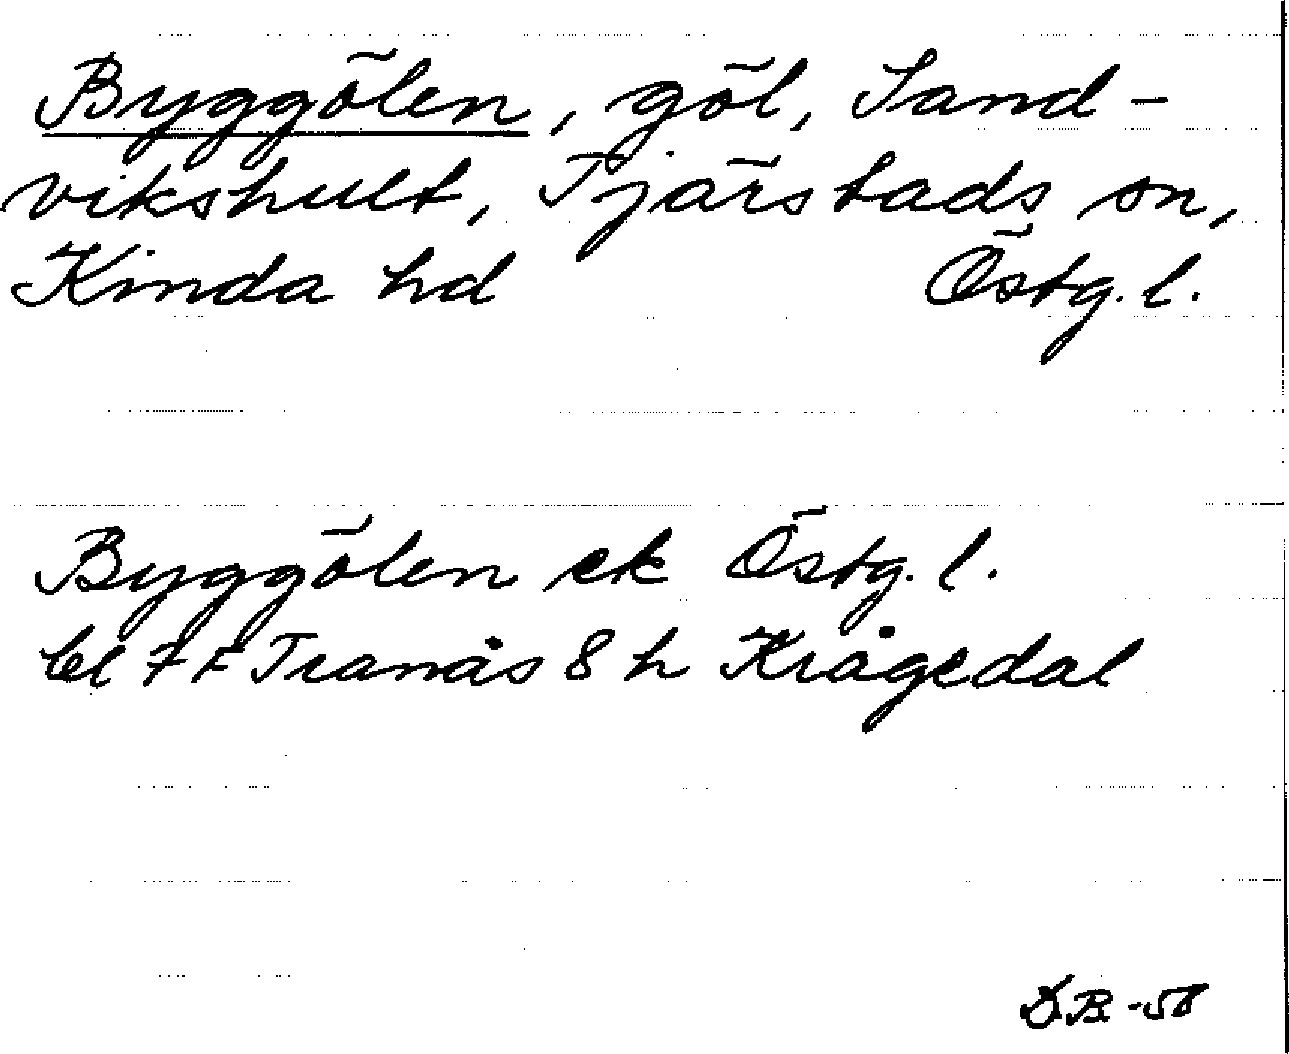 Byggölen, göl, Sand-
vikshult, Tjärstads sn,
Kinda hd Östg. l.
Byggölen ek Östg. l.
bl 7 F Tranås 8 h Krågedal
DB -58